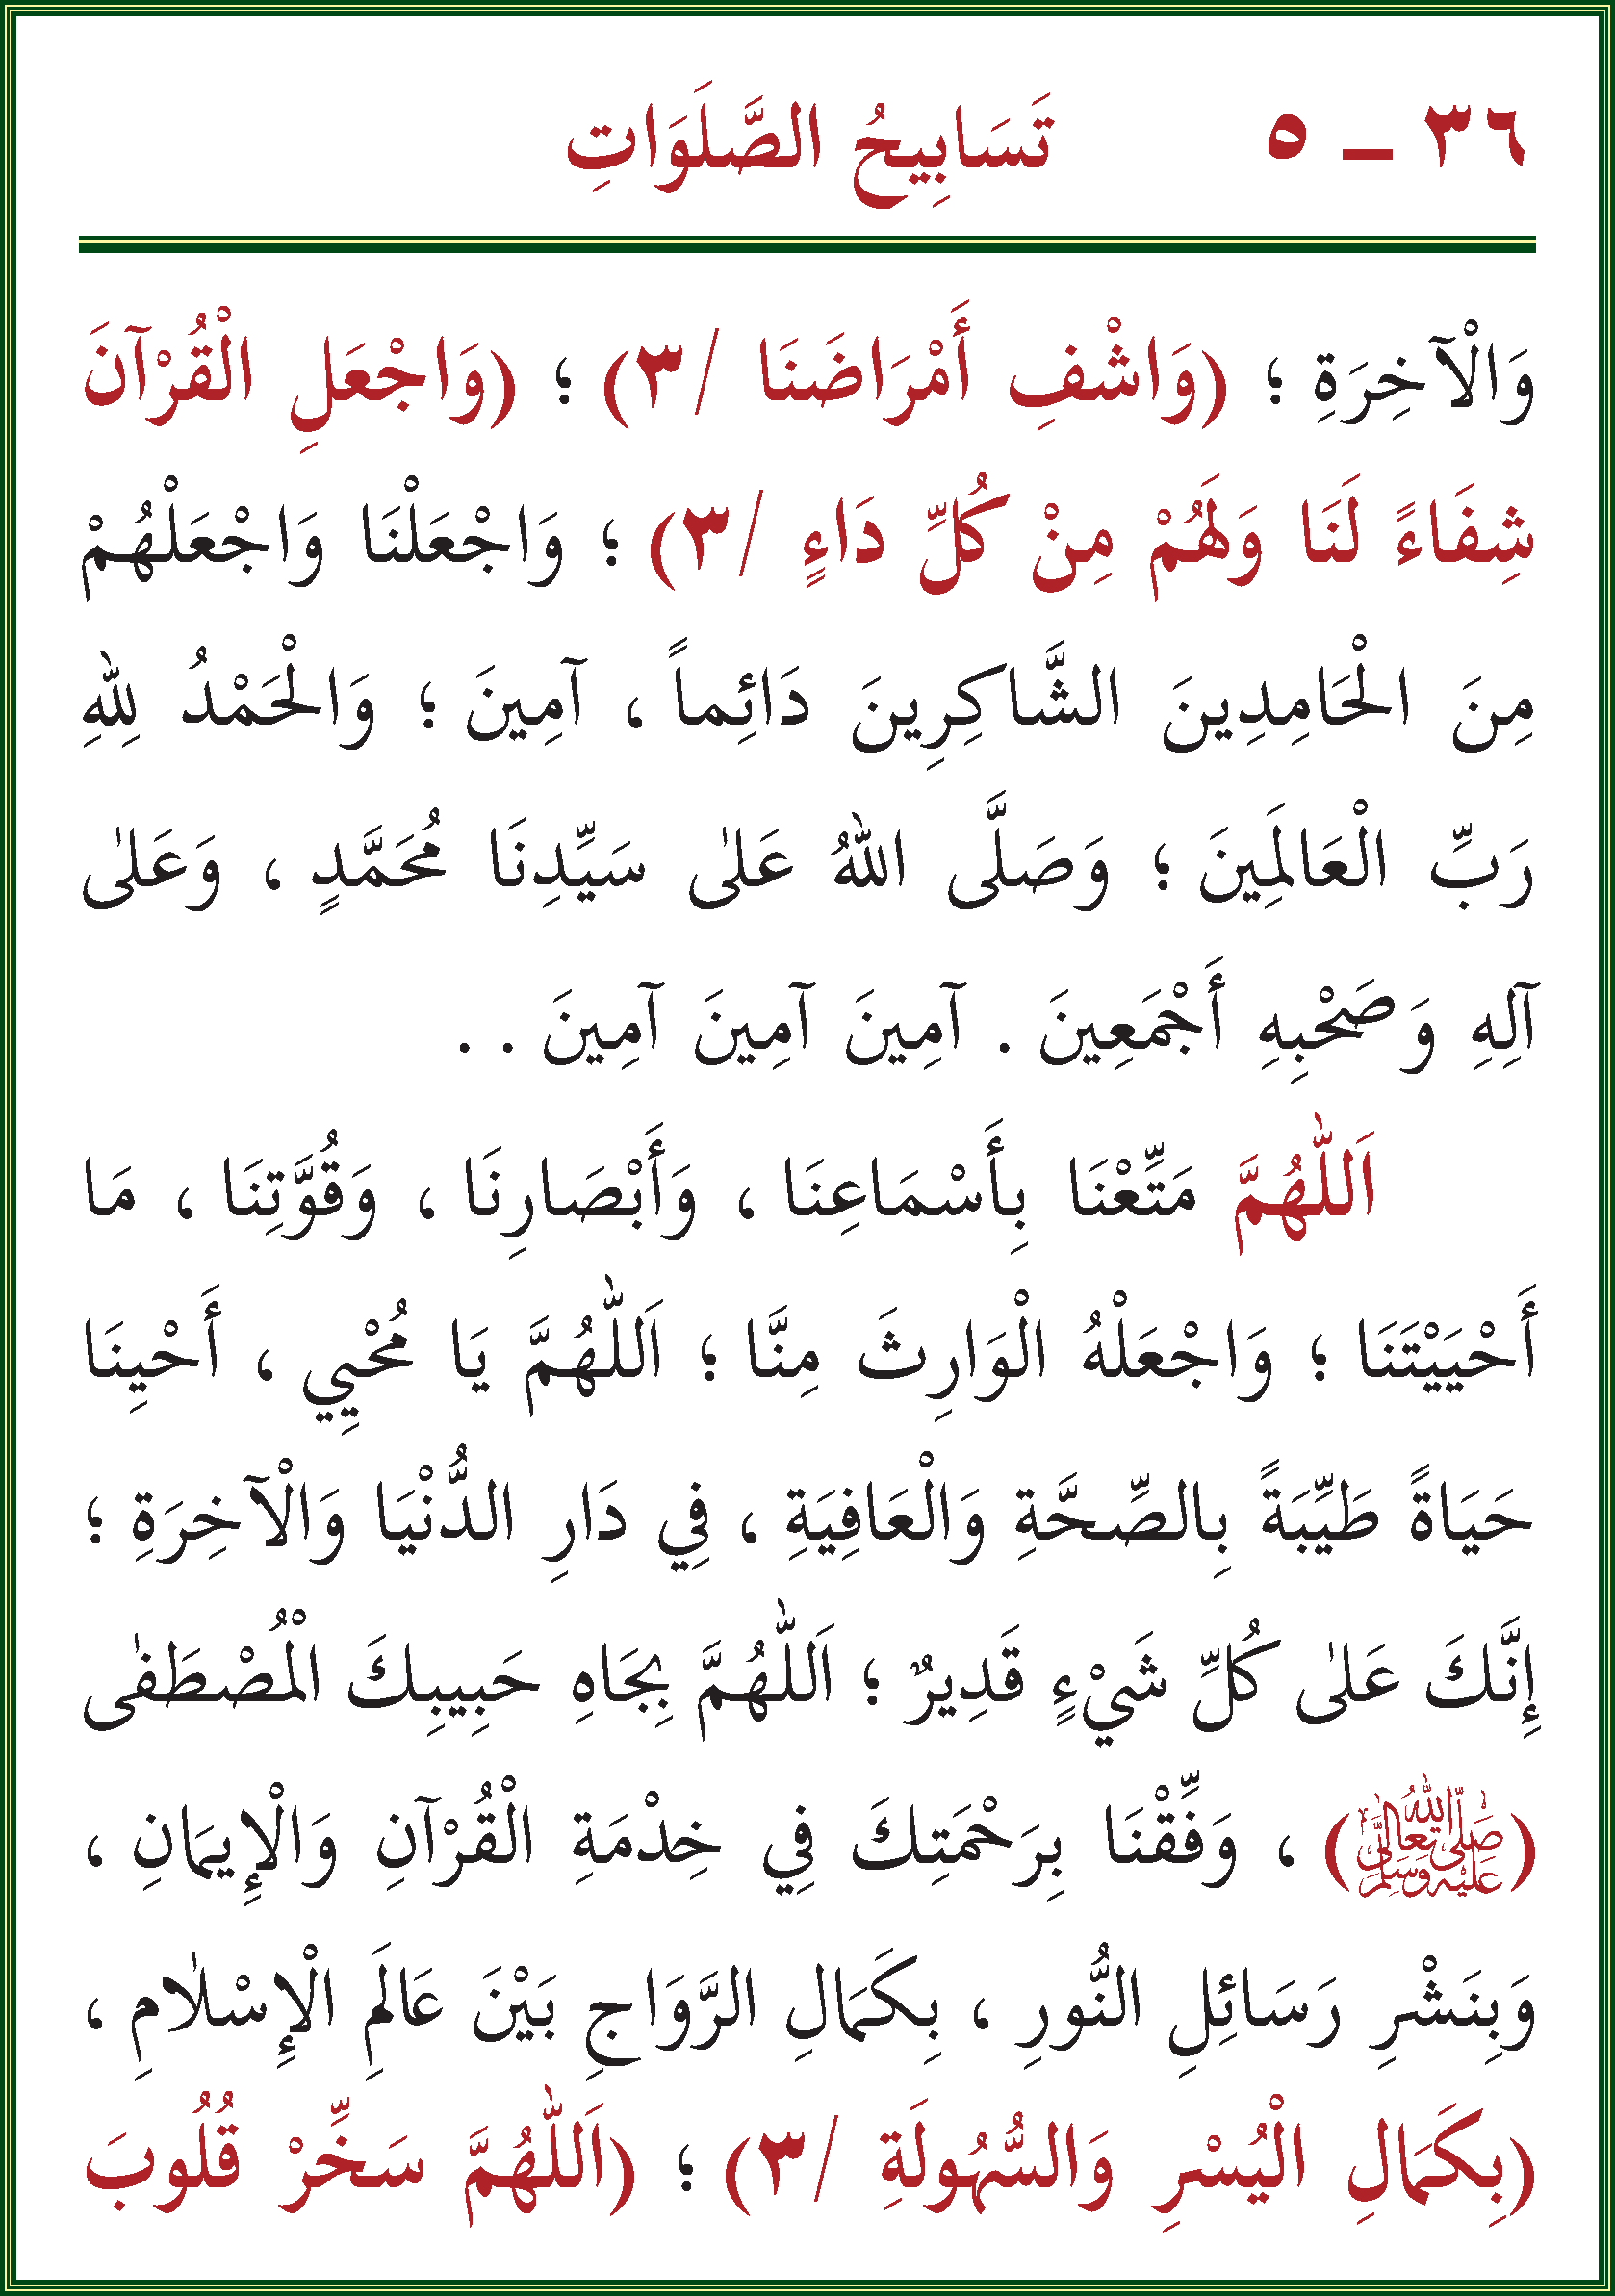 ٣٦ ـ ٥ تَسَابِيحُ الصَّلَوَاتِ
وَالْآخِرَةِ ؛ (وَاشْفِ أَمْرَاضَنَا /٣) ؛ (وَاجْعَلِ الْقُرْآنَ
شِفَاءً لَنَا وَلَهُمْ مِنْ كُلِّ دَاءٍ /٣) ؛ وَاجْعَلْنَا وَاجْعَلْهُمْ
مِنَ الْحَامِدِينَ الشَّاكِرِينَ دَائِماً ، آمِينَ ؛ وَالْحَمْدُ لِلّٰهِ
رَبِّ الْعَالَمِينَ ؛ وَصَلَّى اللّٰهُ عَلٰى سَيِّدِنَا مُحَمَّدٍ ، وَعَلٰى
آلِهِ وَصَحْبِهِ أَجْمَعِينَ . آمِينَ آمِينَ آمِينَ . .
اَللّٰهُمَّ مَتِّعْنَا بِأَسْمَاعِنَا ، وَأَبْصَارِنَا ، وَقُوَّتِنَا ، مَا
أَحْيَيْتَنَا ؛ وَاجْعَلْهُ الْوَارِثَ مِنَّا ؛ اَللّٰهُمَّ يَا مُحْيِي ، أَحْيِنَا
حَيَاةً طَيِّبَةً بِالصِّحَّةِ وَالْعَافِيَةِ ، فِي دَارِ الدُّنْيَا وَالْآخِرَةِ ؛
إِنَّكَ عَلٰى كُلِّ شَيْءٍ قَدِيرٌ ؛ اَللّٰهُمَّ بِجَاهِ حَبِيبِكَ الْمُصْطَفٰى
(صَلَّى اللّٰهُ تَعَالٰى عَلَيْهِ وَسَلَّمَ) ، وَفِّقْنَا بِرَحْمَتِكَ فِي خِدْمَةِ الْقُرْآنِ وَالْإِيمَانِ ،
وَبِنَشْرِ رَسَائِلِ النُّورِ ، بِكَمَالِ الرَّوَاجِ بَيْنَ عَالَمِ الْإِسْلَامِ ،
(بِكَمَالِ الْيُسْرِ وَالسُّهُولَةِ /٣) ؛ (اَللّٰهُمَّ سَخِّرْ قُلُوبَ